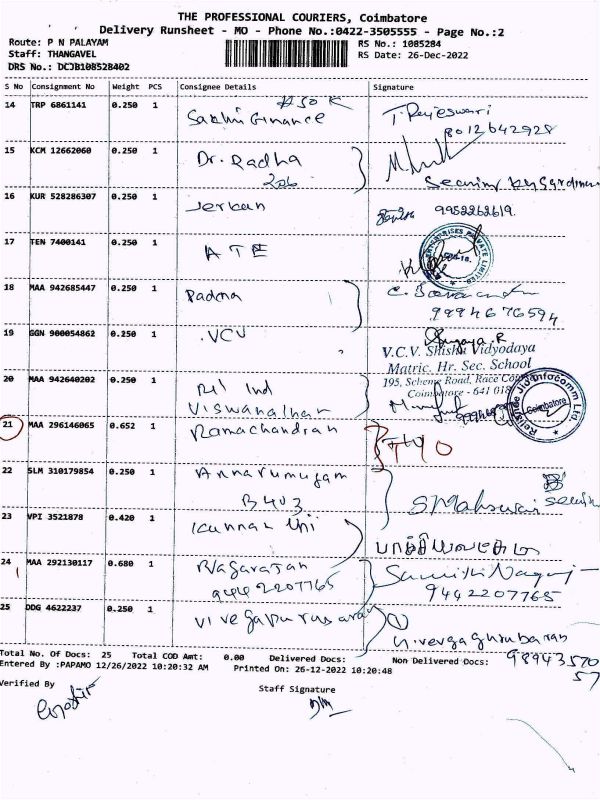 THE PROFESSIONAL COURIERS, Coimbatore
Delivery Runsheet - MO - Phone No.:0422-3505555 - Page No.:2
Route: P N PALAYAM RS No.: 1085284
Staff: THANGAVEL RS Date: 26-Dec-2022
DRS No.: DCJB108528402
S No Consignment No Weight PCS Consignee Details Signature
14 TRP 6861141 0.250 1 Sakthi Finance T. Rajeswari
8012642928
15 KCM 12662060 0.250 1 Dr. Radha
206
16 KUR 528286307 0.250 1 9952262619
17 TEN 7400141 0.250 1 ATE
ENTERPRISES PRIVATE LIMITED
18 MAA 942685447 0.250 1 Padma
9994676594
19 GGN 900054862 0.250 1 .VCV
V.C.V. Shishu Vidyodaya
Matric. Hr. Sec. School
195, Scheme Road, Race
Coimbatore - 641 018
20 MAA 942640202 0.250 1 Rel Ind
Viswanathan
Reliance Jio Infocomm Ltd.
Coimbatore
21 MAA 296146065 0.652 1 Ramachandran
22 SLM 310179854 0.250 1 Annarumugam
B403
23 VPI 3521878 0.420 1 Kannan Uni
24 MAA 292130117 0.680 1 Nagarajan
9442207765 9442207765
25 DDG 4622237 0.250 1
Total No. Of Docs: 25 Total COD Amt: 0.00 Delivered Docs: Non Delivered Docs:
Entered By :PAPAMO 12/26/2022 10:20:32 AM Printed On: 26-12-2022 10:20:48
9894357057
Verified By Staff Signature